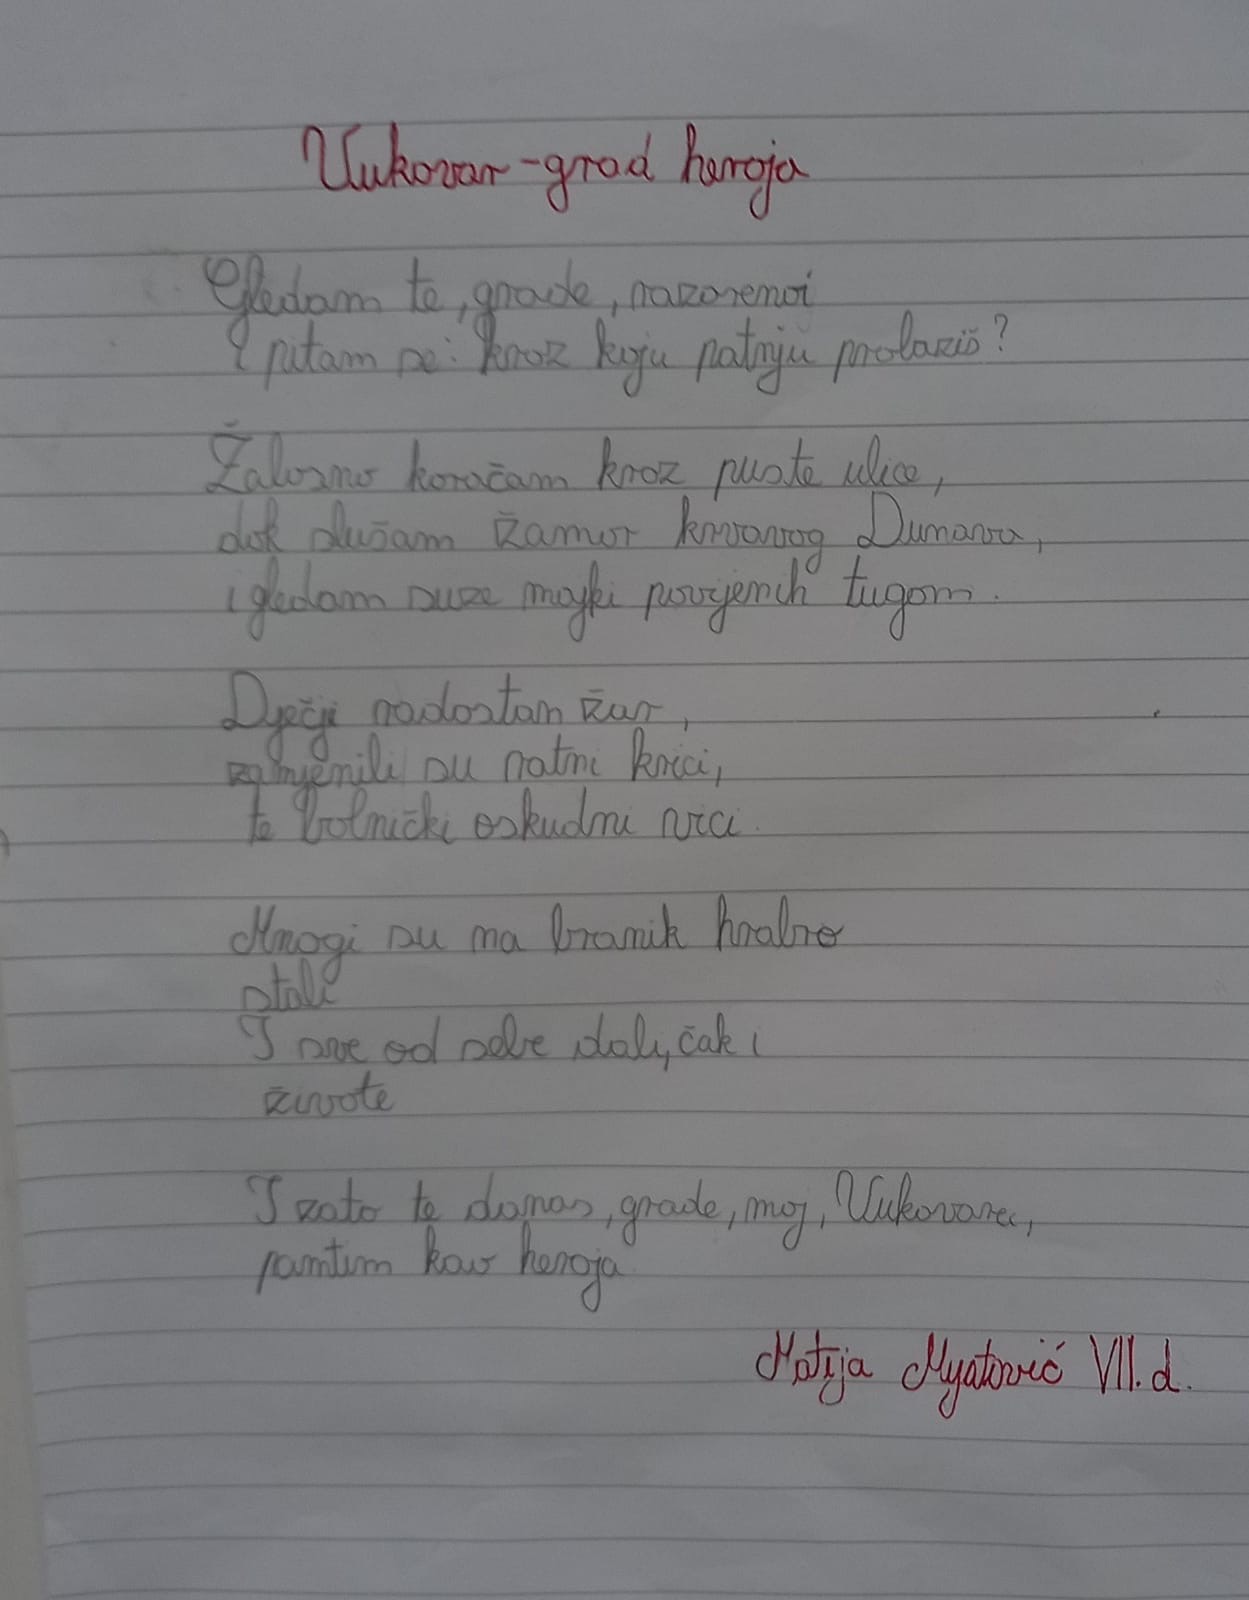 Vukovar-grad heroja
Gledam te, grade, razoreni
I pitam se: kroz koju patnju prolaziš?
Žalosno koračam kroz puste ulice,
dok slušam žamor krvavog Dunava,
i gledam suze majki povijenih tugom.
Dječji radostan žar,
zamijenili su ratni krici,
te bolnički oskudni vici.
Mnogi su na branik hrabro
stali
I sve od sebe dali, čak i
živote
I zato te danas, grade, moj, Vukovare,
pamtim kao heroja
Matija Mijatović VII. d.